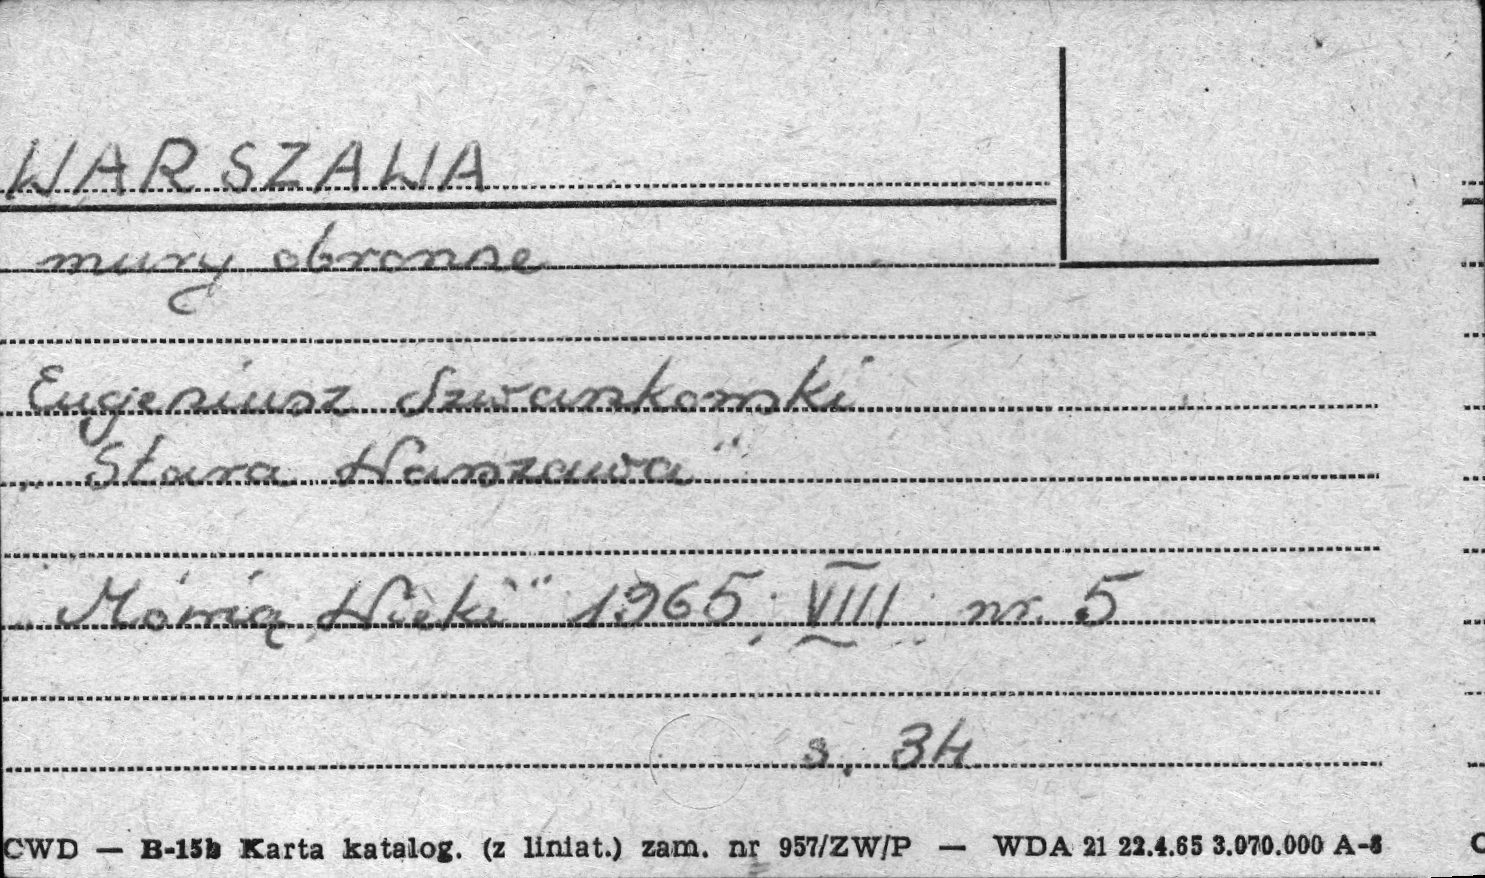 WARSZAWA
mury obronne
Eugeniusz Szwankowski
„Stara Warszawa"
„Mówią Wieki" 1965, VIII nr. 5
s. 34
CWD — B-15b Karta katalog. (z liniat.) zam. nr 957/ZW/P — WDA 21 22.4.65 3.070.000 A-6